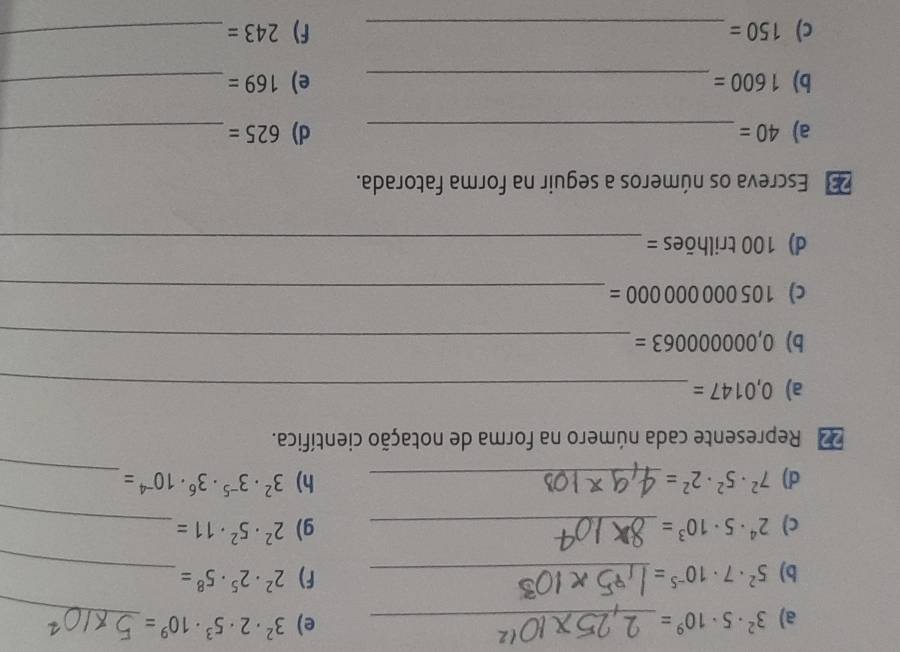 a) 3² · 5 · 10⁹ = 2,25 x 10¹² e) 3² · 2 · 5³ · 10⁹ = 5 x 10²
b) 5² · 7 · 10⁻⁵ = 1,75 x 10³ f) 2² · 2⁵ · 5⁸ =
c) 2⁴ · 5 · 10³ = 8x 10⁴ g) 2² · 5² · 11 =
d) 7² · 5² · 2² = 4,9 x 10³ h) 3² · 3⁻⁵ · 3⁶ · 10⁻⁴ =
22 Represente cada número na forma de notação científica.
a) 0,0147 =
b) 0,0000000063 =
c) 105 000 000 000 =
d) 100 trilhões =
23 Escreva os números a seguir na forma fatorada.
a) 40 = d) 625 =
b) 1 600 = e) 169 =
c) 150 = f) 243 =